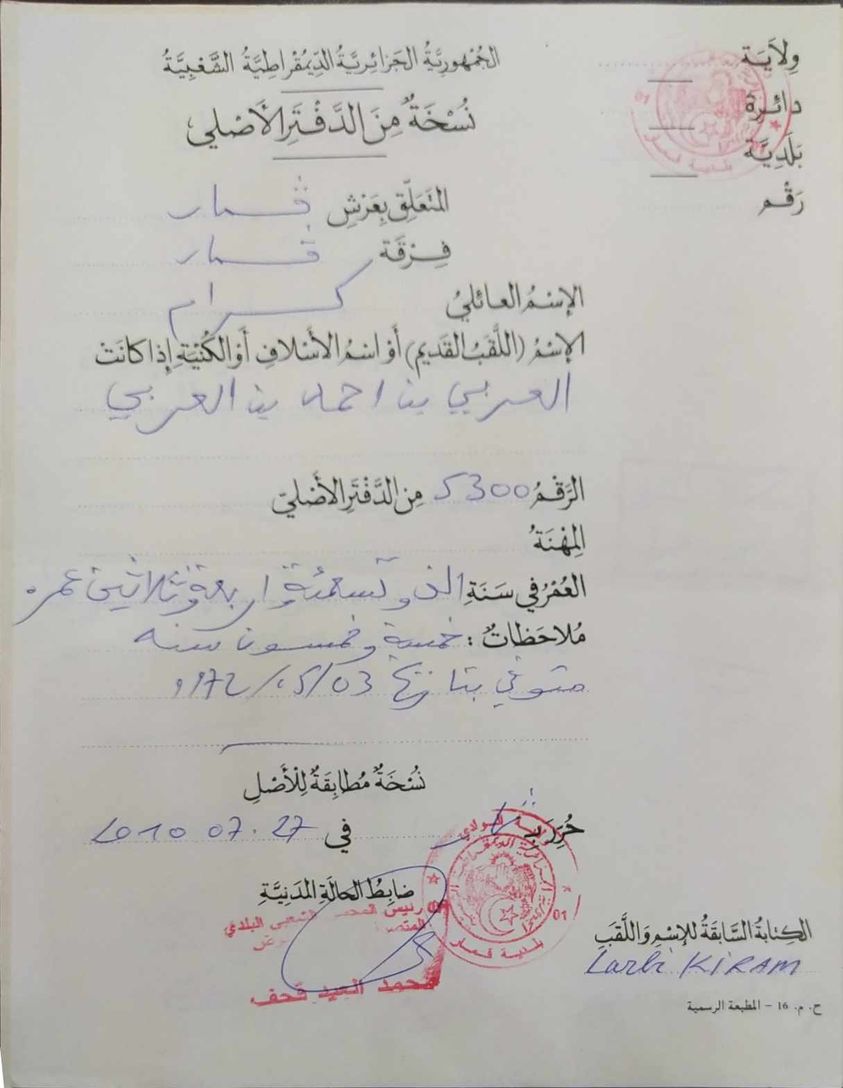 الجُمْهورِيَّةُ الجَزائِرِيَّةُ الدِّيمُقْراطِيَّةُ الشَّعْبِيَّةُ
وِلاَيَة
دائرة
بَلَدِيَّة
رَقْم
نُسْخَةٌ مِنَ الدَّفْتَرِ الأَصْلي
المتَعَلِّق بِعَرْشِ ڨمار
فِرْقَة ڨمار
الإسْمُ العائليُ كرام
الإسْمُ (اللَّقَبُ القَديم) أَوْ اسْمُ الأَسْلافِ أَوْ الكُنْيَةِ إذا كانَتْ
العربي بن احمد بن العربي
الرَّقْمُ 5300 مِن الدَّفْتَرِ الأَصْليّ
المِهْنَةُ
العُمْرُ في سَنَةِ الف وتسعمئة واربعة وثلاثين عمره
مُلاحَظاتٌ : خمسة وخمسون سنه
متوفي بتاريخ 1972/05/03
نُسْخَةٌ مُطابِقَةٌ لِلْأَصْلِ
حُرِّرَ بِـ ڨمار
في 2010 07.27
ضابِطُ الحالَةِ المَدَنِيَّةِ
رئيس المجلس الشعبي البلدي
محمد العيد قحف
بلدية قمار
01
الكِتابَةُ السَّابِقَةُ للإسْمِ وَاللَّقَبِ
Larbi KIRAM
ح. م. 16 – المطبعة الرسمية